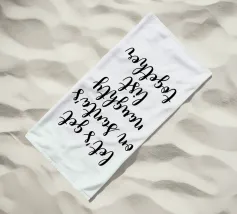 let's get
on santa's
naughty
list
together